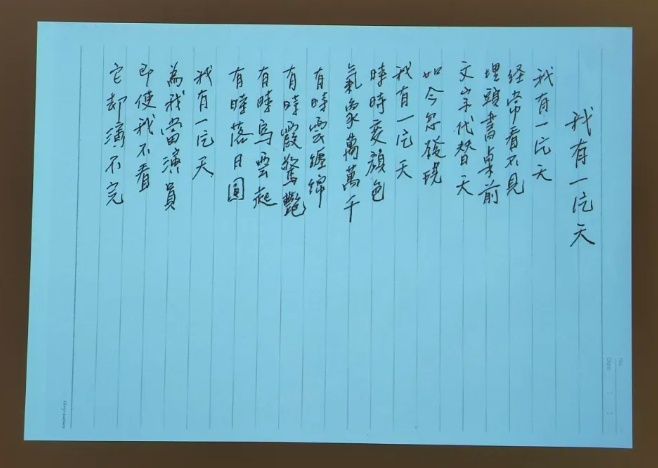 我有一片天
我有一片天
經常看不見
埋頭書桌前
文字代替天
如今忽發現
我有一片天
時時變顏色
氣象萬萬千
有時雲纏綿
有時霞驚艷
有時烏雲起
有時落日圓
我有一片天
為我當演員
即使我不看
它却演不完
No.
Date